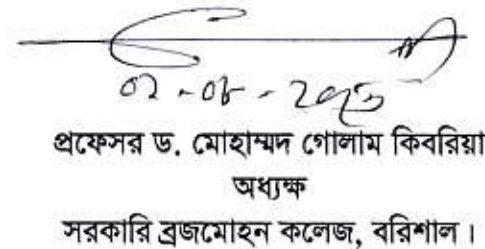 প্রফেসর ড. মোহাম্মদ গোলাম কিবরিয়া
অধ্যক্ষ
সরকারি ব্রজমোহন কলেজ, বরিশাল।